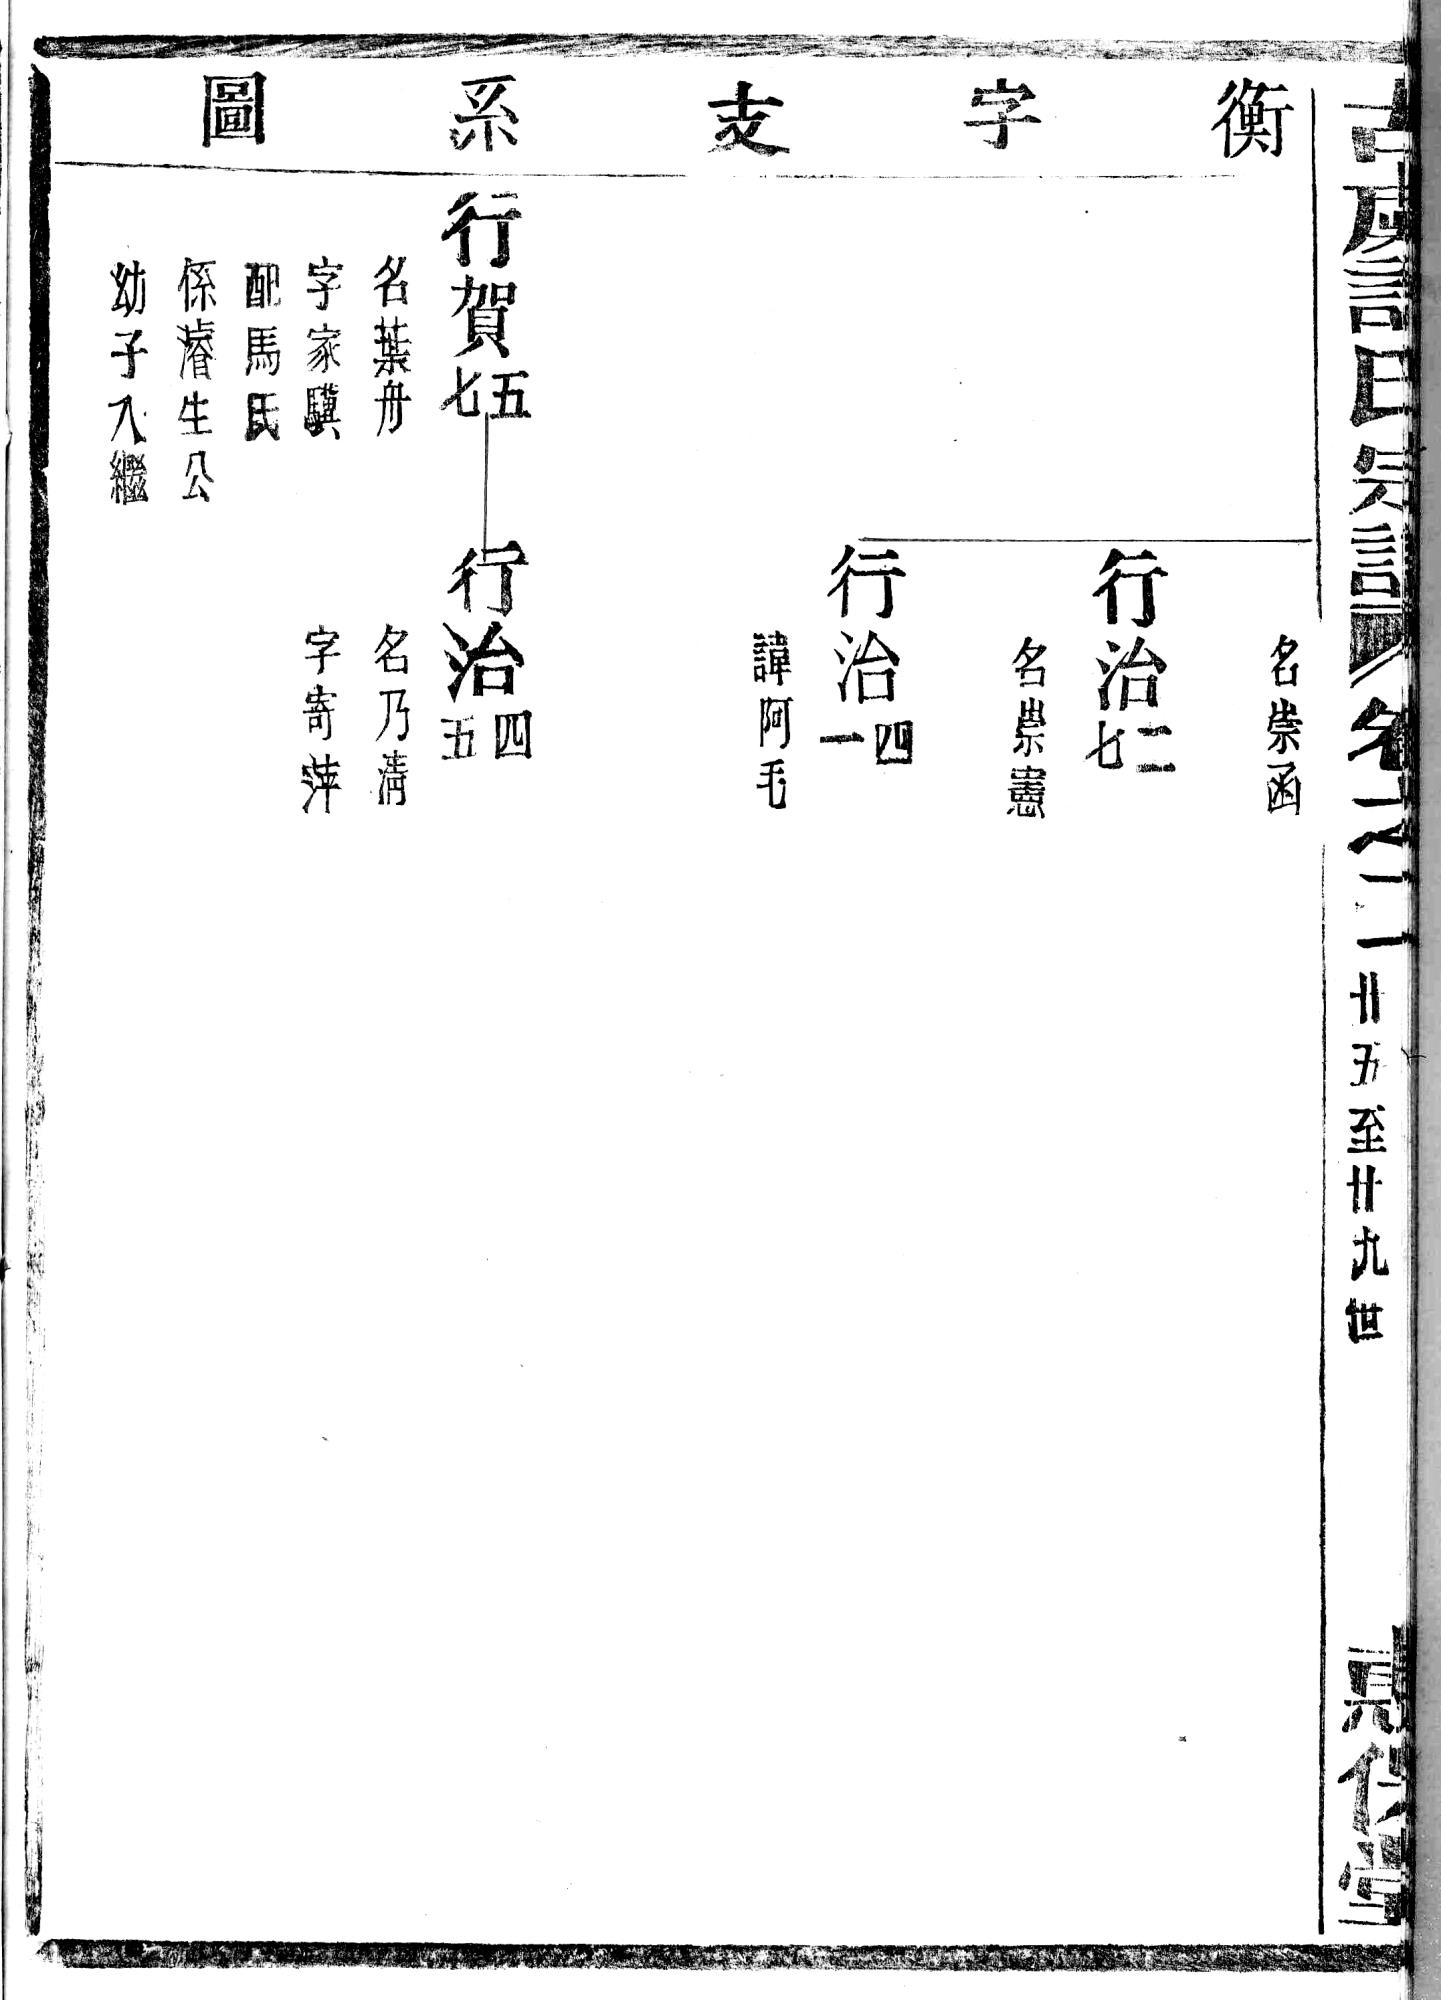 衡字支系圖
名崇函
行治二七
名崇憲
行治四一
諱阿毛
行賀五七
名葉舟
字家驥
配馬氏
係濬生公
幼子入繼
行治四五
名乃清
字寄萍
氏宗譜
卷之二
廿五至廿九世
堂